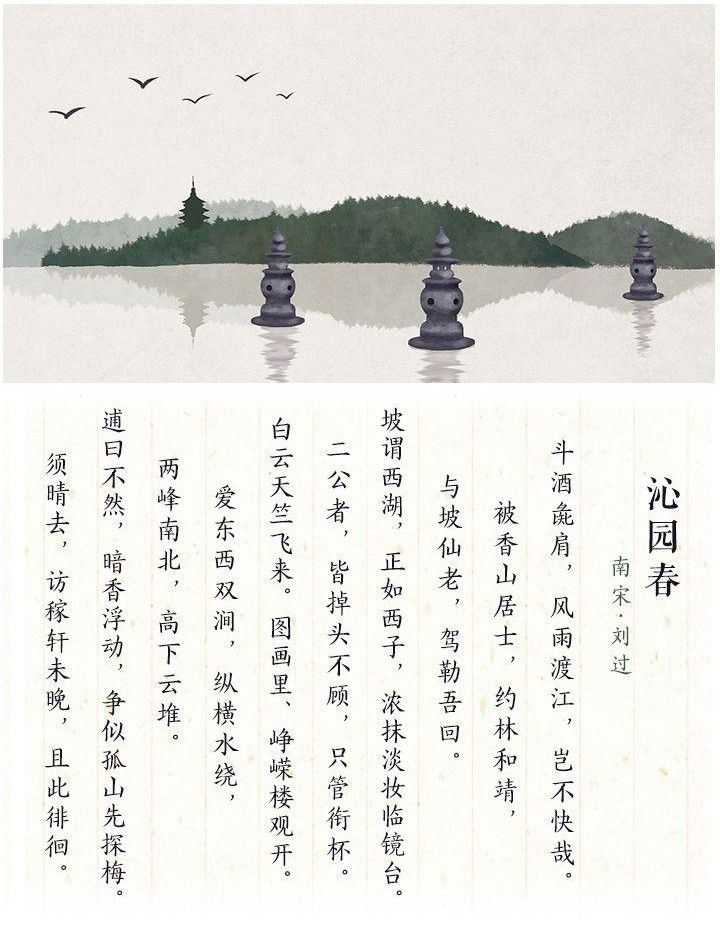 沁园春
南宋·刘过
斗酒彘肩，风雨渡江，岂不快哉。
被香山居士，约林和靖，
与坡仙老，驾勒吾回。
坡谓西湖，正如西子，浓抹淡妆临镜台。
二公者，皆掉头不顾，只管衔杯。
白云天竺飞来。图画里、峥嵘楼观开。
爱东西双涧，纵横水绕，
两峰南北，高下云堆。
逋曰不然，暗香浮动，争似孤山先探梅。
须晴去，访稼轩未晚，且此徘徊。